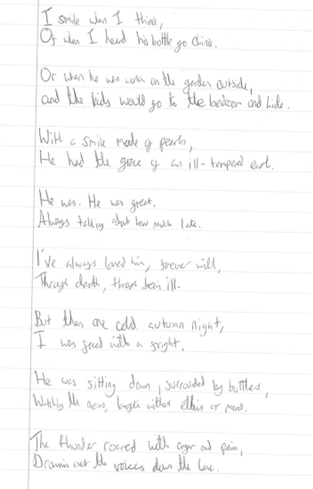 I smile when I think,
Of when I heard his bottle go chink.
Or when he was work on the garden outside,
and the kids would go to the bedroom and hide.
With a smile made of pearls,
He had the grace of an ill-tempered earl.
He was. He was great.
Always talking about how much
I've always loved him, forever will,
Through death, through been ill.
But then one cold autumn night,
I was faced with a fright.
He was sitting down, surrounded by bottles,
Watching the news, without or
The thunder roared with anger and pain,
Drownin out the voices down the lane.